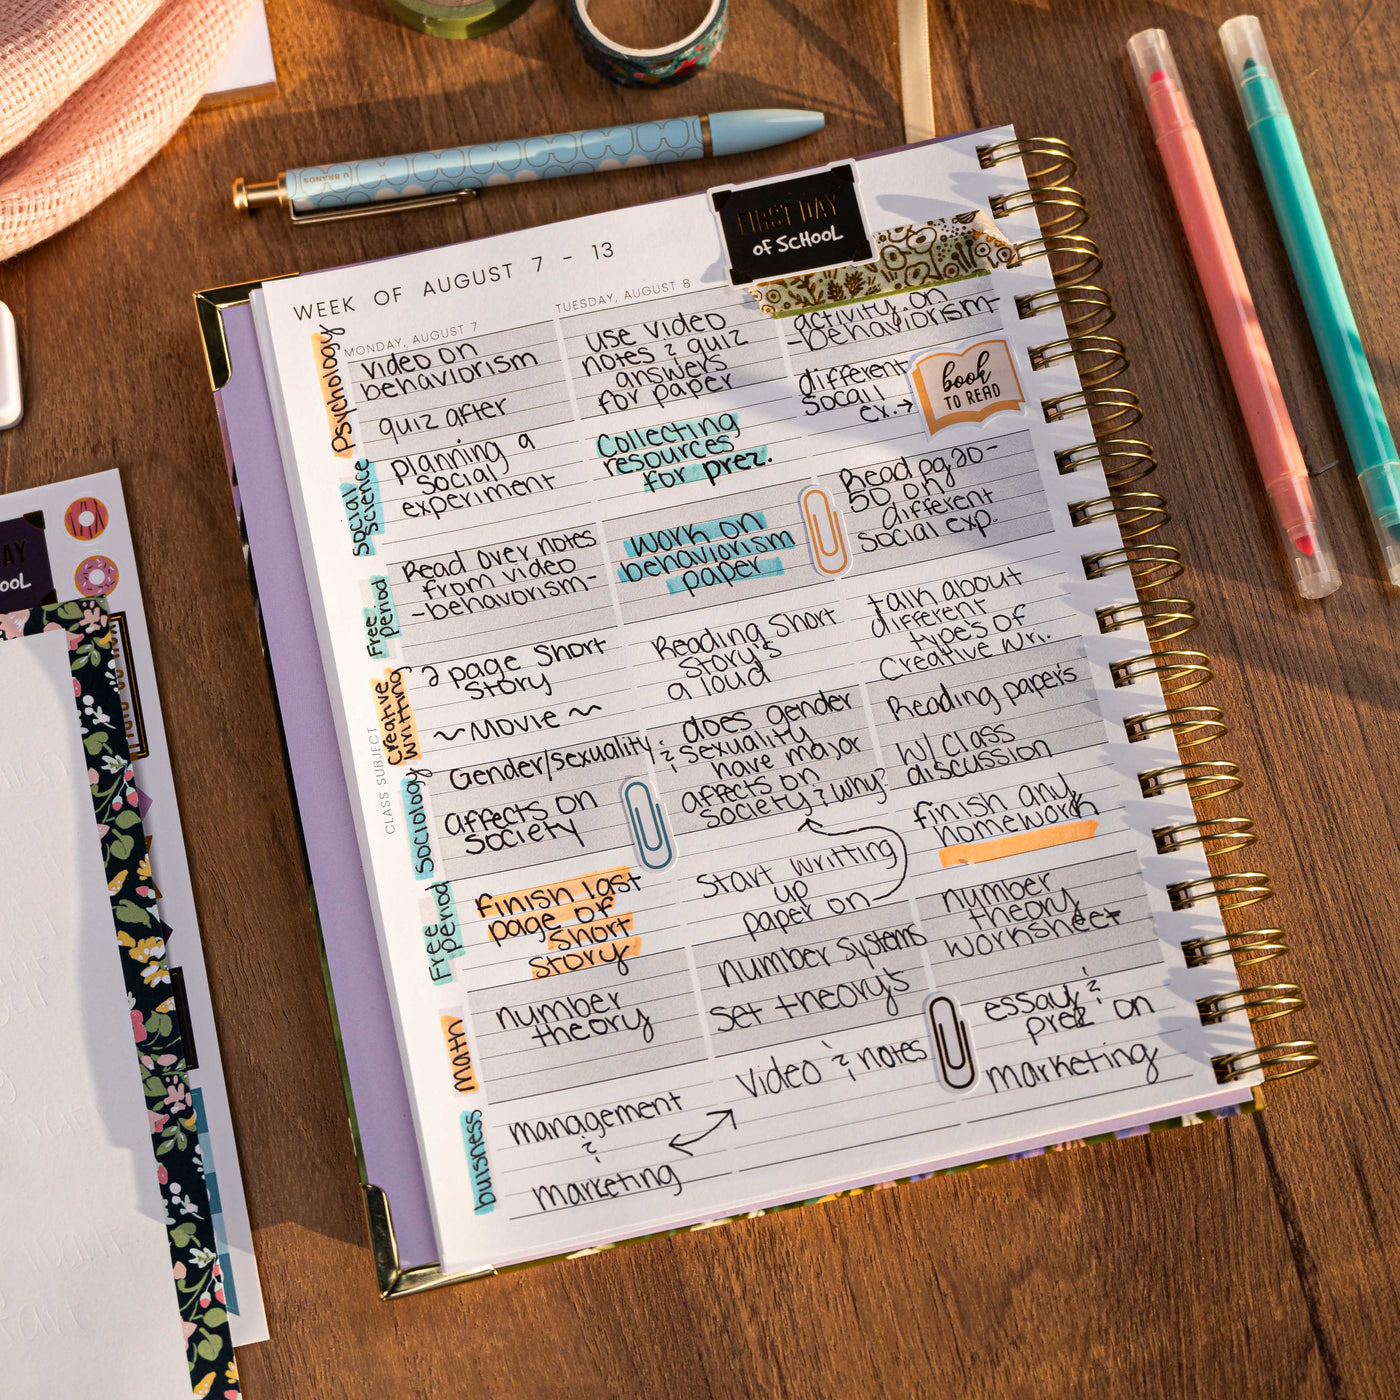 U BRANDS
FIRST DAY
OF SCHOOL
WEEK OF AUGUST 7 - 13
MONDAY, AUGUST 7
TUESDAY, AUGUST 8
CLASS SUBJECT
Psychology
video on
behaviorism
quiz after
use video
notes & quiz
answers
for paper
activity on
-behaviorism-
different
Socail
ex.→
book
TO READ
Social
Science
planning a
Social
experiment
Collecting
resources
for prez.
Read pg 20-
50 on
different
social exp.
Free
Period
Read over notes
from video
-behavorism-
work on
behaviorism
paper
talk about
different
types of
Creative wri.
Creative
Writing
2 page Short
Story
~Movie~
Reading Short
Story's
a loud
Reading papers
w/ class
discussion
Sociology
Gender/sexuality
affects on
society
does gender
& sexuality
have major
affects on
society & why?
finish any
homework
Free
period
finish last
page of
short
story
Start writting
up
paper on
number
theory
worksheet
Math
number
theory
number systems
set theory's
essay &
prez on
marketing
buisness
management
&
marketing
Video & notes
AY
OOL